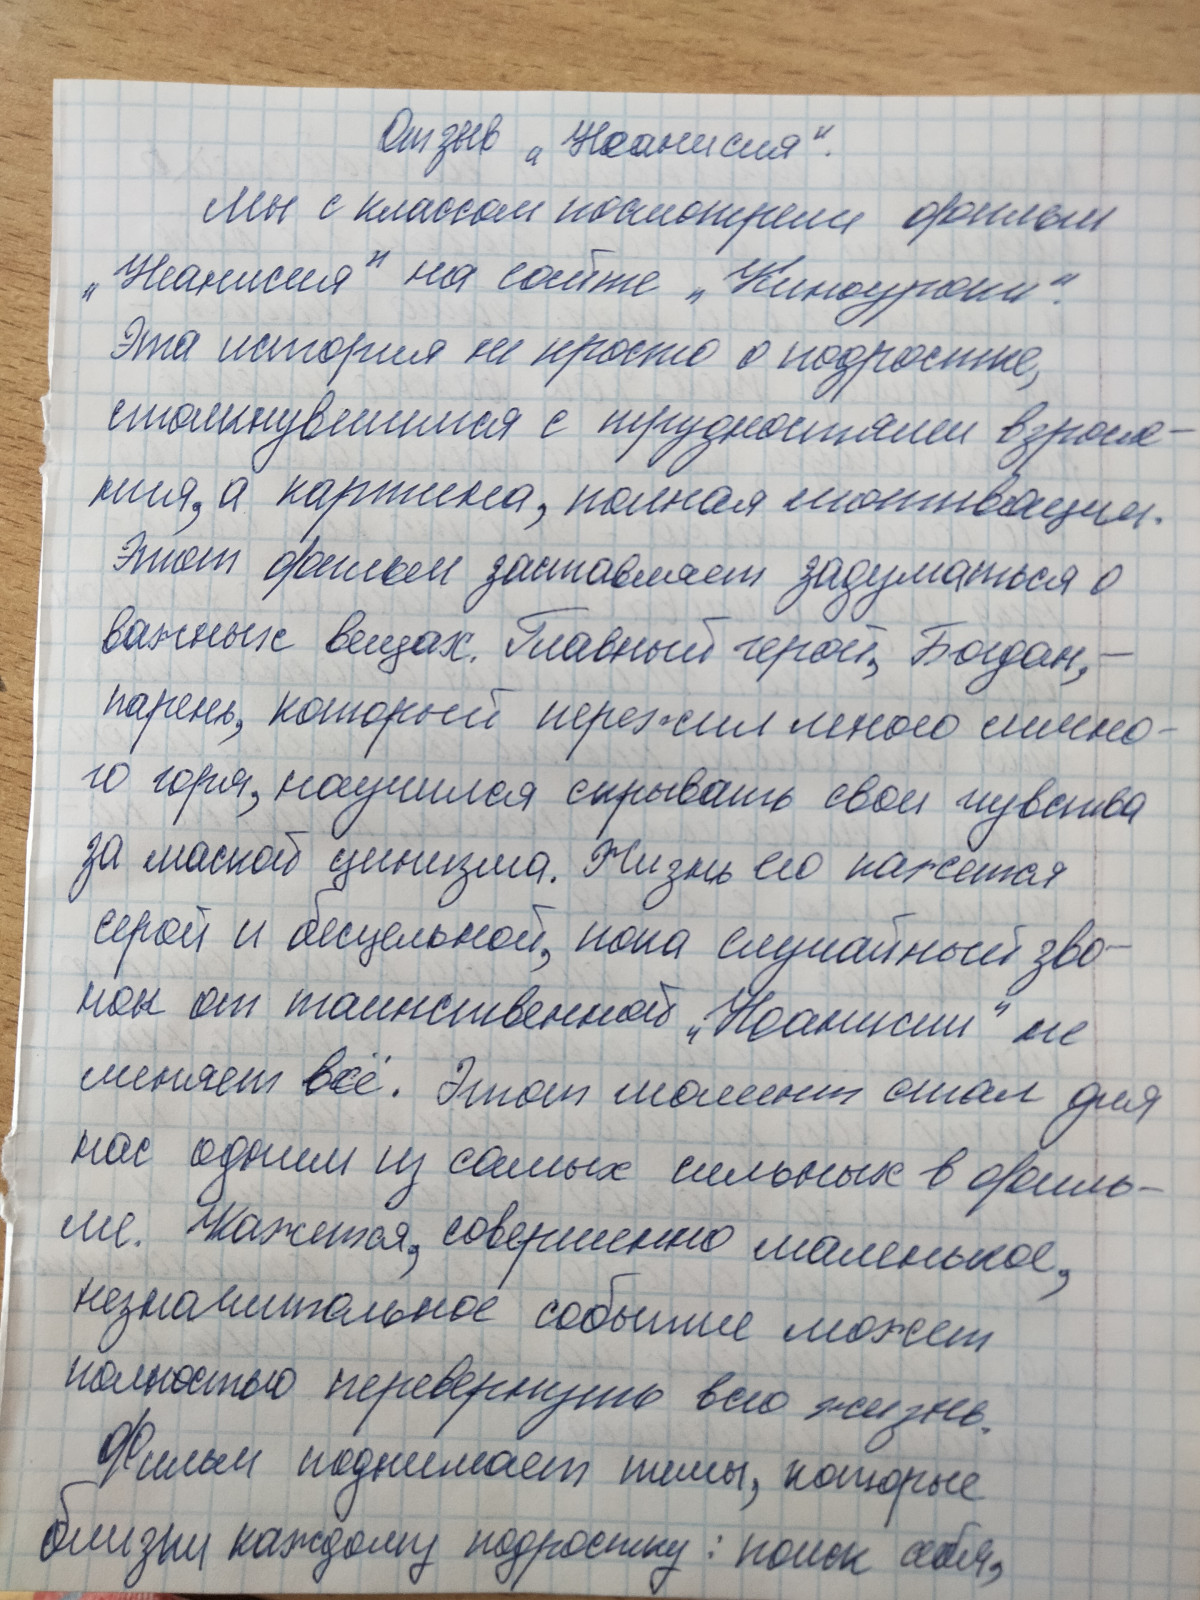 Отзыв „Иоанисия".
Мы с классом посмотрели фильм
„Иоанисия" на сайте „Киноуроки".
Эта история не просто о подростке,
столкнувшимся с трудностями взросле-
ния, а картина, полная мотивации.
Этот фильм заставляет задуматься о
важных вещах. Главный герой, Богдан, –
парень, который пережил много лично-
го горя, научился скрывать свои чувства
за маской цинизма. Жизнь его кажется
серой и бесцельной, пока случайный зво-
нок от таинственной „Иоанисии" не
меняет всё. Этот момент стал для
нас одним из самых сильных в филь-
ме. Кажется, совершенно маленькое,
незначительное событие может
полностью перевернуть всю жизнь.
Фильм поднимает темы, которые
близки каждому подростку: поиск себя,